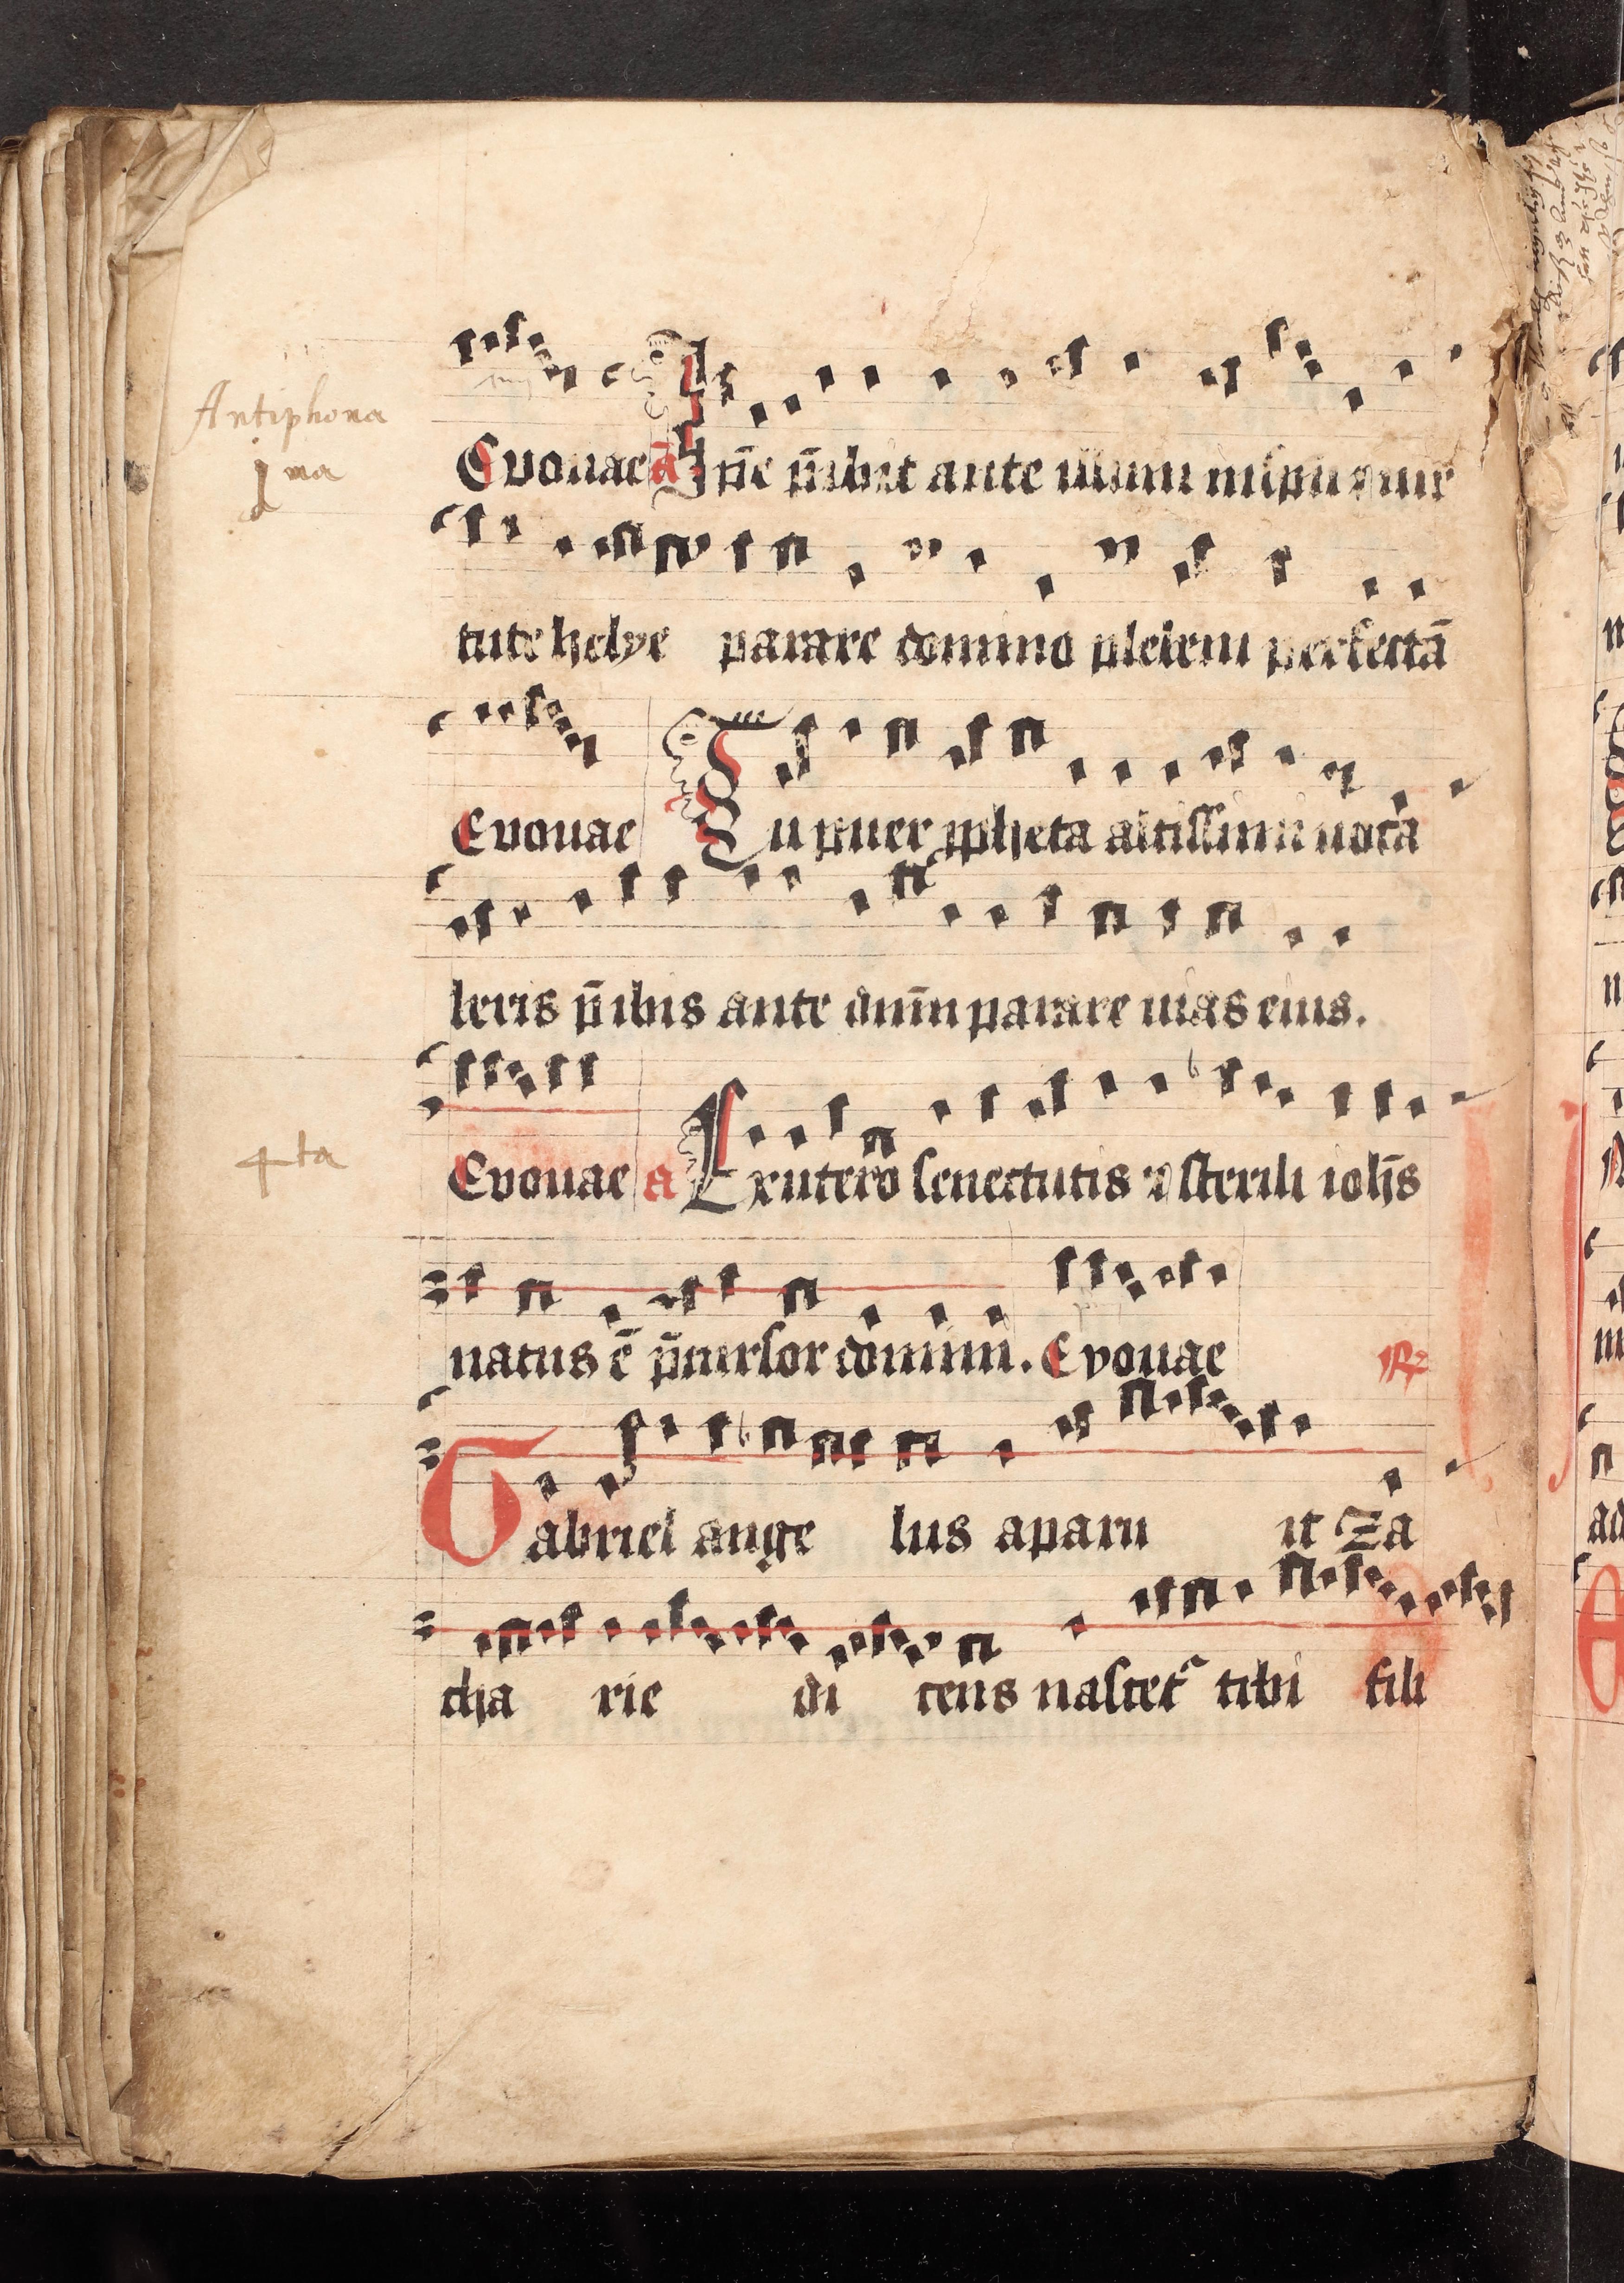 Antiphona
jma
Evouae a Ip̄e p̄ibit ante illum in sp̄u ⁊ uir
tute helye parare domino plebem perfectā
Evouae Tu puer ꝓpheta altissimi uocā
beris p̄ibis ante dnm̄ parare uias eius.
4ta
Evouae a Ex utero senectutis ⁊ sterili ioh̄s
natus ē p̄cursor domini. Evouae ℟
Gabriel ange lus aparu it Za
cha rie di cens nascet᷑ tibi fili